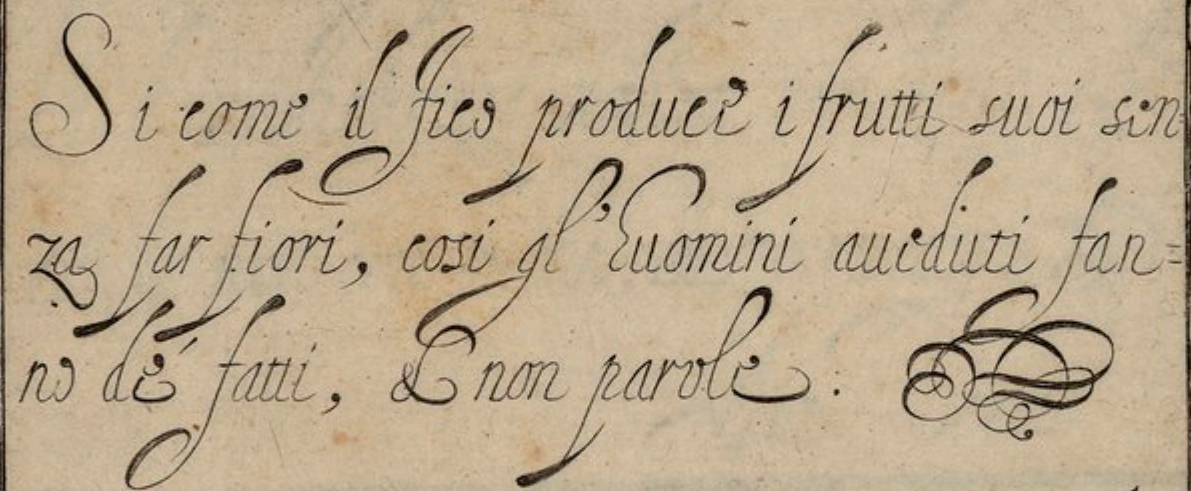 Si come il fico produce i frutti suoi sen=
za far fiori, cosi gl'huomini aueduti fan=
no de' fatti, & non parole.